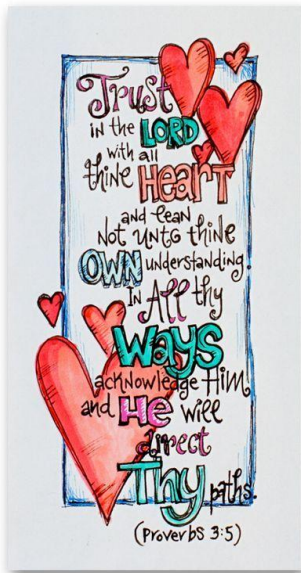 Trust
in the LORD
with all
thine Heart
and lean
Not unto thine
OWN understanding.
In All thy
Ways
acknowledge Him
and He will
direct
Thy paths.
(Proverbs 3:5)